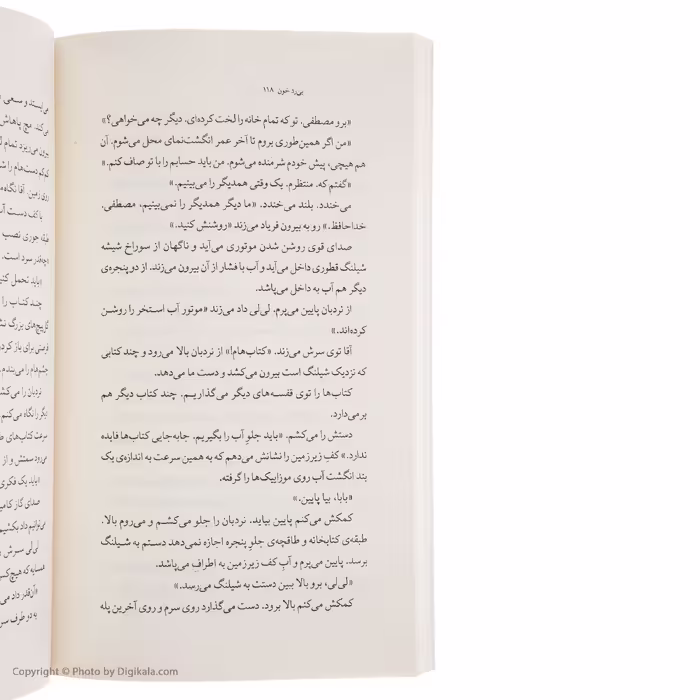 بی‌رد خون ۱۱۸
«برو مصطفی. تو که تمام خانه را لخت کرده‌ای. دیگر چه می‌خواهی؟»
«من اگر همین‌طوری بروم تا آخر عمر انگشت‌نمای محل می‌شوم. آن
هم هیچی، پیش خودم شرمنده می‌شوم. من باید حسابم را با تو صاف کنم.»
«گفتم که. منتظرم. یک وقتی همدیگر را می‌بینیم.»
می‌خندد. بلند می‌خندد. «ما دیگر همدیگر را نمی‌بینیم، مصطفی.
خداحافظ.» رو به بیرون فریاد می‌زند «روشنش کنید.»
صدای قوی روشن شدن موتوری می‌آید و ناگهان از سوراخ شیشه
شیلنگ قطوری داخل می‌آید و آب با فشار از آن بیرون می‌زند. از دو پنجره‌ی
دیگر هم آب به داخل می‌پاشد.
از نردبان پایین می‌پرم. لی‌لی داد می‌زند «موتور آب استخر را روشن
کرده‌اند.»
آقا توی سرش می‌زند. «کتاب‌هام!» از نردبان بالا می‌رود و چند کتابی
که نزدیک شیلنگ است بیرون می‌کشد و دست ما می‌دهد.
کتاب‌ها را توی قفسه‌های دیگر می‌گذاریم. چند کتاب دیگر هم
برمی‌دارد.
دستش را می‌کشم. «باید جلو آب را بگیریم. جابه‌جایی کتاب‌ها فایده
ندارد.» کف زیرزمین را نشانش می‌دهم که به همین سرعت به اندازه‌ی یک
بند انگشت آب روی موزاییک‌ها را گرفته.
«بابا، بیا پایین.»
کمکش می‌کنم پایین بیاید. نردبان را جلو می‌کشم و می‌روم بالا.
طبقه‌ی کتابخانه و طاقچه‌ی جلو پنجره اجازه نمی‌دهد دستم به شیلنگ
برسد. پایین می‌پرم و آب کف زیرزمین به اطراف می‌پاشد.
«لی‌لی، برو بالا ببین دستت به شیلنگ می‌رسد.»
کمکش می‌کنم بالا برود. دست می‌گذارد روی سرم و روی آخرین پله
می‌ایستد و سعی
می‌کند. مچ پاهاش
بیرون می‌ریزد تمام
روی زمین. آقا نگاه
با کف دست آب
جوری نصب
سرد است.
«باید تحمل
چند کتاب را
برای باز کردن
نردبان را می‌کشم
دیگر را نگاه می‌کنم
سرعت کتاب‌های
می‌رود سمتش و از
«باید یک فکری
صدای گاز
می‌توانیم داد بکشیم
لی‌لی سرش
همسایه که هیچ‌کس
«آن‌قدر داد می
به دو طرف
Copyright © Photo by Digikala.com